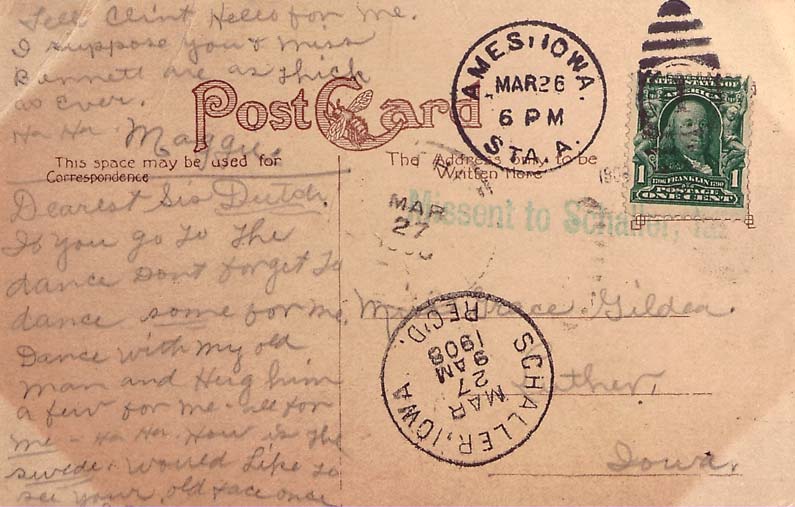 Tell Clint Hello for me.
I suppose you & Miss
Bennett are as thick
as ever.
Ha Ha. Maggie.
Post Card
This space may be used for
Correspondence
The Address only to be
Written Here
Dearest Sis Dutch.
If you go to the
dance dont forget to
dance some for me.
Dance with my old
man and Hug him
a few for me
me - Ha Ha. How is the
swede. Would Like to
see your old face once
AMES, IOWA.
MAR 26
6 PM
STA. A.
1908
1 1706 FRANKLIN 1790 1
POSTAGE
ONE CENT
MAR
27
Missent to Schaller, Ia.
Miss Grace Gilden.
Luther,
Iowa.
SCHALLER, IOWA
MAR
27
9 AM
1908
REC'D.